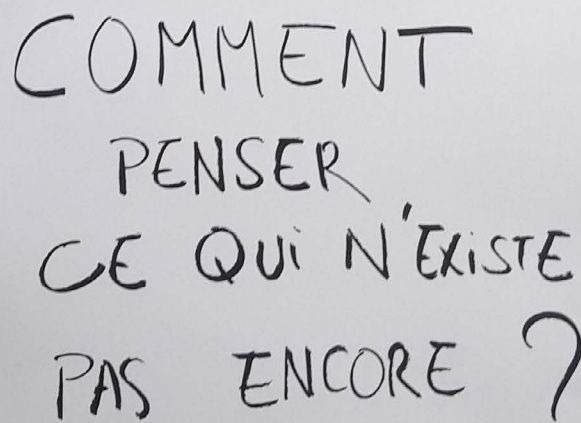 COMMENT
PENSER
CE QUi N'EXiSTE
PAS ENCORE ?